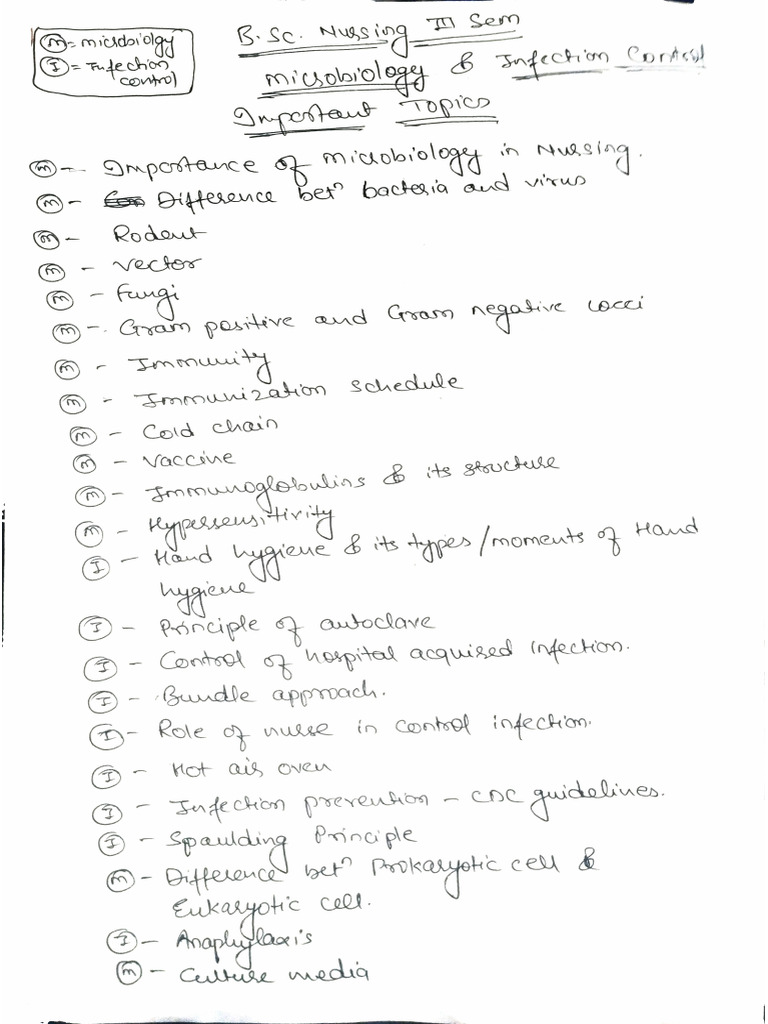 Ⓜ = microbiology
Ⓘ = Infection
control
B.Sc. Nursing III Sem
microbiology & Infection Control
Important Topics
Ⓜ - Importance of microbiology in Nursing.
Ⓜ - Difference betn bacteria and virus
Ⓜ - Rodent
Ⓜ - Vector
Ⓜ - Fungi
Ⓜ - Gram positive and Gram negative cocci
Ⓜ - Immunity
Ⓜ - Immunization schedule
Ⓜ - Cold chain
Ⓜ - Vaccine
Ⓜ - Immunoglobulins & its structure
Ⓜ - Hypersensitivity
Ⓘ - Hand hygiene & its types/moments of Hand
hygiene
Ⓘ - Principle of autoclave
Ⓘ - Control of hospital acquired infection.
Ⓘ - Bundle approach.
Ⓘ - Role of nurse in control infection.
Ⓘ - Hot air oven
Ⓘ - Infection prevention - CDC guidelines.
Ⓘ - Spaulding Principle
Ⓜ - Difference betn Prokaryotic cell &
Eukaryotic cell.
Ⓘ - Anaphylaxis
Ⓜ - Culture media